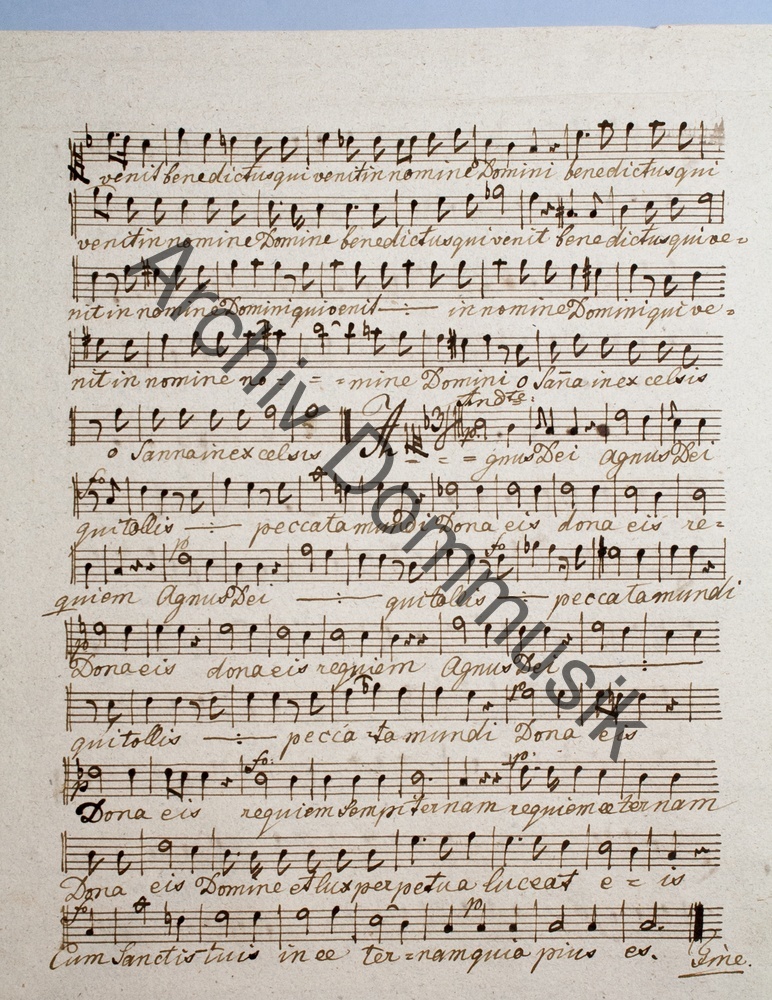 venit benedictus qui venit in nomine Domini benedictus qui
venit in nomine Domine benedictus qui venit benedictus qui ve=
nit in nomine Domini qui venit in nomine Domini qui ve=
nit in nomine no= = =mine Domini o Sana in excelsis
Andte:
o Sanna in excelsis A = = =gnus Dei agnus Dei
fo
qui tollis peccata mundi Dona eis dona eis re=
p fo
quiem Agnus Dei qui tollis peccata mundi
p
Dona eis dona eis requiem Agnus Dei
qui tollis pecca=ta mundi Dona eis
p fo: p:
Dona eis requiem sempiternam requiem æternam
Dona eis Domine et lux perpetua luceat e= =is
fo p
Cum Sanctis tuis in æ ter=nam quia pius es. Fine.
Archiv Dommusik